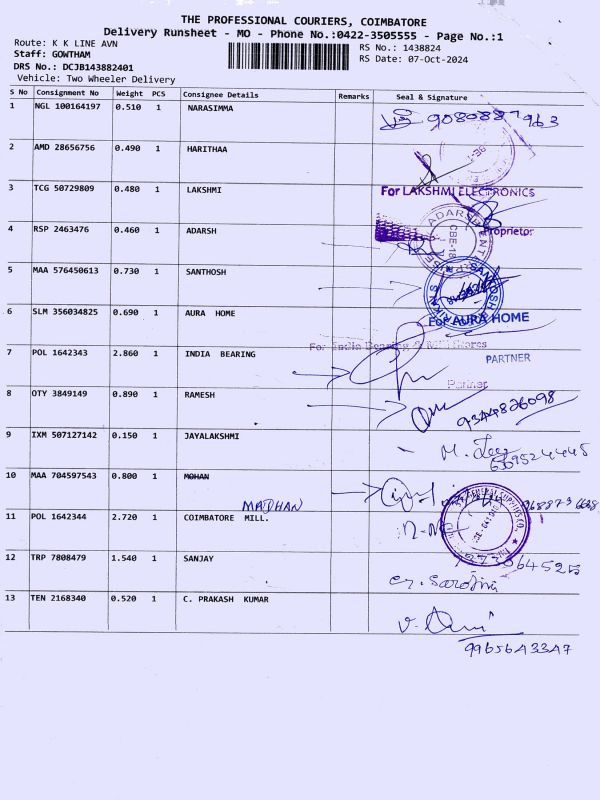 THE PROFESSIONAL COURIERS, COIMBATORE
Delivery Runsheet - MO - Phone No.:0422-3505555 - Page No.:1
Route: K K LINE AVN
Staff: GOWTHAM
DRS No.: DCJB143882401
Vehicle: Two Wheeler Delivery
RS No.: 1438824
RS Date: 07-Oct-2024
S No Consignment No Weight PCS Consignee Details Remarks Seal & Signature
1 NGL 100164197 0.510 1 NARASIMMA 9080887963
2 AMD 28656756 0.490 1 HARITHAA
3 TCG 50729809 0.480 1 LAKSHMI For LAKSHMI ELECTRONICS
Proprietor
4 RSP 2463476 0.460 1 ADARSH ADARSH CBE-18
5 MAA 576450613 0.730 1 SANTHOSH SANTHOSH
6 SLM 356034825 0.690 1 AURA HOME For AURA HOME
PARTNER
7 POL 1642343 2.860 1 INDIA BEARING For India Bearing & Mill Stores
Partner
8 OTY 3849149 0.890 1 RAMESH 9344826098
9 IXM 507127142 0.150 1 JAYALAKSHMI
10 MAA 704597543 0.800 1 MOHAN
MADHAN
11 POL 1642344 2.720 1 COIMBATORE MILL. GENERAL SUPPLIES CO.
12 TRP 7808479 1.540 1 SANJAY
13 TEN 2168340 0.520 1 C. PRAKASH KUMAR
9965643347